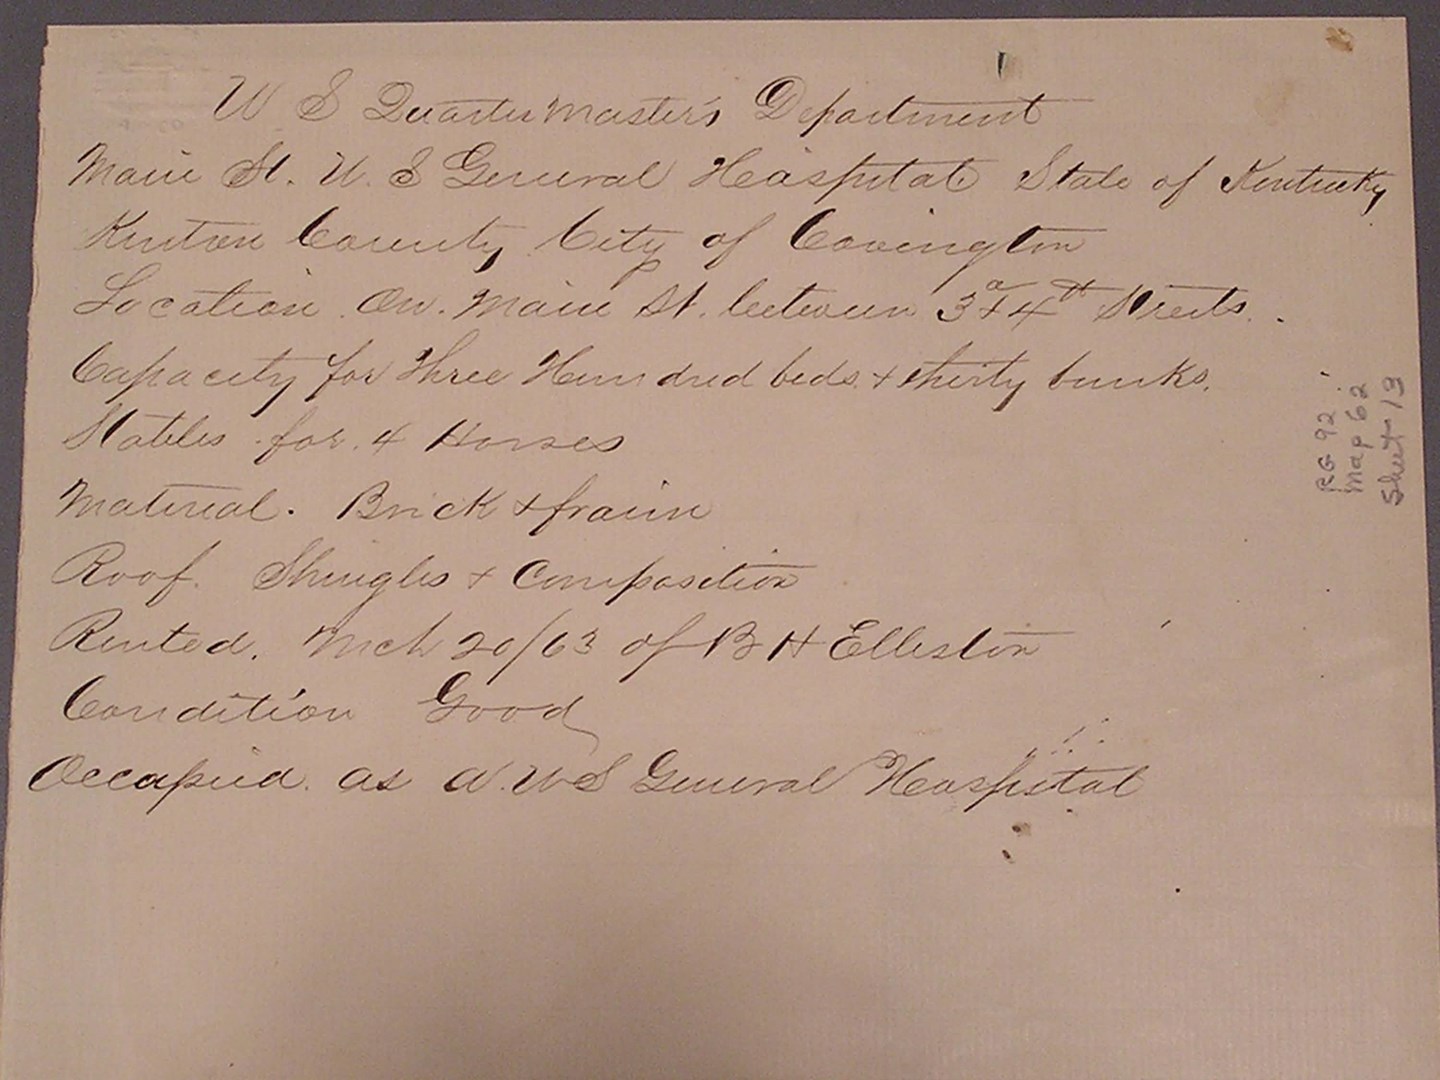 U S Quartermaster's Department
Main St. U. S General Hospital State of Kentucky
Kenton County City of Covington
Location On. Main St. between 3d & 4th Streets.
Capacity for Three Hundred beds & thirty bunks.
Stables for 4 Horses
Material. Brick & frame
Roof. Shingles & Composition
Rented. Mch 20/63 of B H Elliston
Condition Good
Occupied as a U S General Hospital
RG 92
Map 62
Sheet 13